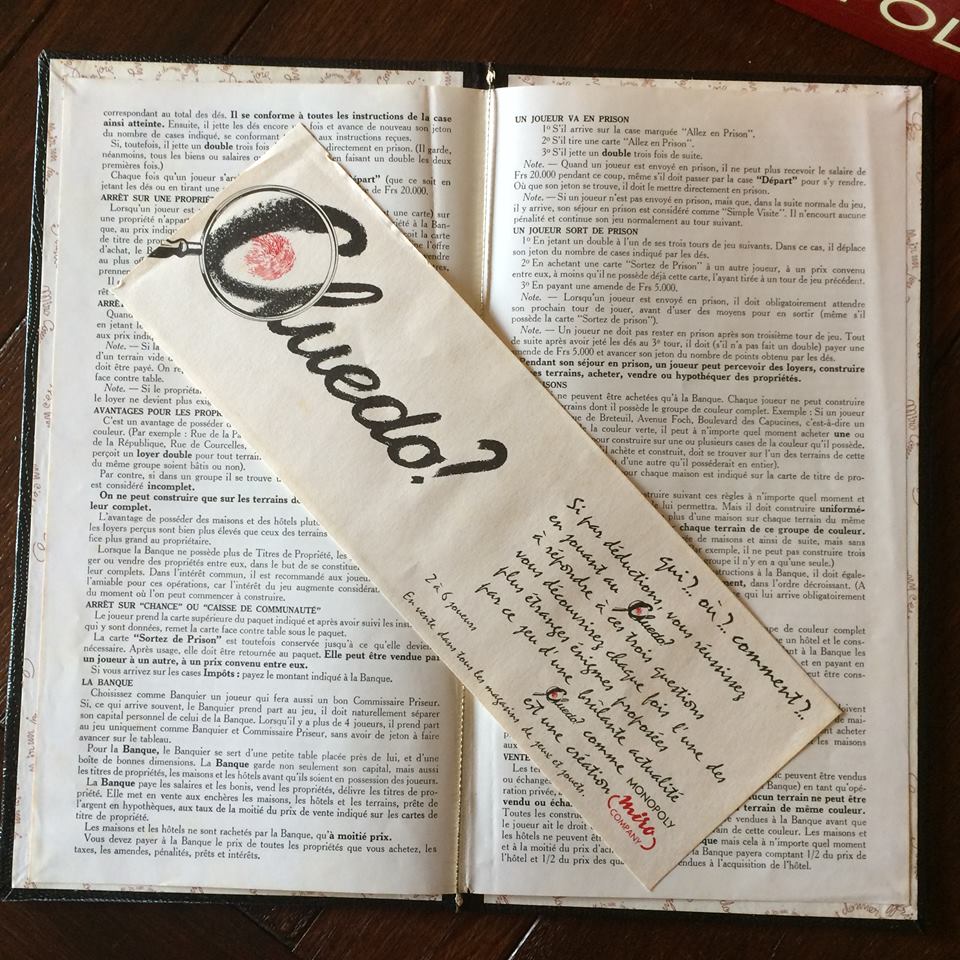 correspondant au total des dés. Il se conforme à toutes les instructions de la case
ainsi atteinte. Ensuite, il jette les dés encore fois et avance de nouveau son jeton
du nombre de cases indiqué, se conformant aux instructions reçues.
Si, toutefois, il jette un double trois fois directement en prison. (Il garde,
néanmoins, tous les biens ou salaires en faisant un double les deux
premières fois.)
Chaque fois qu'un joueur s'arr épart" (que ce soit en
jetant les dés ou en tirant une de Frs 20.000.
ARRÊT SUR UNE PROPRIÉT
Lorsqu'un joueur est une carte) sur
une propriété n'appart
que, au prix indiqué la carte
de titre de pro l'offre
d'achat, le B
au plus o
prenne
Il
rêt s
ARRÊT
Quand
en jetant le
aux prix indiq
Note. — Si la
d'un terrain vide
doit être payé. On re
face contre table.
Note. — Si le propriéta
le loyer ne devient plus exi
AVANTAGES POUR LES PROPR
C'est un avantage de posséder d
couleur. (Par exemple : Rue de la Pa
de la République, Rue de Courcelles,
perçoit un loyer double pour tout terrain
du même groupe soient bâtis ou non).
Par contre, si dans un groupe il se trouve u
est considéré incomplet.
On ne peut construire que sur les terrains de
leur complet.
L'avantage de posséder des maisons et des hôtels plutô
les loyers perçus sont bien plus élevés que ceux des terrains
fice plus grand au propriétaire.
Lorsque la Banque ne possède plus de Titres de Propriété, les
ger ou vendre des propriétés entre eux, dans le but de se constitue
leur complets. Dans l'intérêt commun, il est recommandé aux joueu
l'amiable pour ces opérations, car l'intérêt du jeu augmente considéra
du moment où l'on peut commencer à construire.
ARRÊT SUR "CHANCE" OU "CAISSE DE COMMUNAUTÉ"
Le joueur prend la carte supérieure du paquet indiqué et après avoir suivi les inst
qui y sont données, remet la carte face contre table sous le paquet.
La carte "Sortez de Prison" est toutefois conservée jusqu'à ce qu'elle devien
nécessaire. Après usage, elle doit être retournée au paquet. Elle peut être vendue par
un joueur à un autre, à un prix convenu entre eux.
Si vous arrivez sur les cases Impôts : payez le montant indiqué à la Banque.
LA BANQUE
Choisissez comme Banquier un joueur qui fera aussi un bon Commissaire Priseur.
Si, ce qui arrive souvent, le Banquier prend part au jeu, il doit naturellement séparer
son capital personnel de celui de la Banque. Lorsqu'il y a plus de 4 joueurs, il prend part
au jeu uniquement comme Banquier et Commissaire Priseur, sans avoir de jeton à faire
avancer sur le tableau.
Pour la Banque, le Banquier se sert d'une petite table placée près de lui, et d'une
boîte de bonnes dimensions. La Banque garde non seulement son capital, mais aussi
les titres de propriétés, les maisons et les hôtels avant qu'ils soient en possession des joueurs.
La Banque paye les salaires et les bonis, vend les propriétés, délivre les titres de pro-
priété. Elle met en vente aux enchères les maisons, les hôtels et les terrains, prête de
l'argent en hypothèques, aux taux de la moitié du prix de vente indiqué sur les cartes de
titre de propriété.
Les maisons et les hôtels ne sont rachetés par la Banque, qu'à moitié prix.
Vous devez payer à la Banque le prix de toutes les propriétés que vous achetez, les
taxes, les amendes, pénalités, prêts et intérêts.
UN JOUEUR VA EN PRISON
1º S'il arrive sur la case marquée "Allez en Prison".
2º S'il tire une carte "Allez en Prison".
3º S'il jette un double trois fois de suite.
Note. — Quand un joueur est envoyé en prison, il ne peut plus recevoir le salaire de
Frs 20.000 pendant ce coup, même s'il doit passer par la case "Départ" pour s'y rendre.
Où que son jeton se trouve, il doit le mettre directement en prison.
Note. — Si un joueur n'est pas envoyé en prison mais que, dans la suite normale du jeu,
il y arrive, son séjour en prison est considéré comme "Simple Visite". Il n'encourt aucune
pénalité et continue son jeu normalement au tour suivant.
UN JOUEUR SORT DE PRISON
1º En jetant un double à l'un de ses trois tours de jeu suivants. Dans ce cas, il déplace
son jeton du nombre de cases indiqué par les dés.
2º En achetant une carte "Sortez de Prison" à un autre joueur, à un prix convenu
entre eux, à moins qu'il ne possède déjà cette carte, l'ayant tirée à un tour de jeu précédent.
3º En payant une amende de Frs 5.000.
Note. — Lorsqu'un joueur est envoyé en prison, il doit obligatoirement attendre
son prochain tour de jouer, avant d'user des moyens pour en sortir (même s'il
possède la carte "Sortez de prison").
Note. — Un joueur ne doit pas rester en prison après son troisième tour de jeu. Tout
de suite après avoir jeté les dés au 3º tour, il doit (s'il n'a pas fait un double) payer une
amende de Frs 5.000 et avancer son jeton du nombre de points obtenu par les dés.
Pendant son séjour en prison, un joueur peut percevoir des loyers, construire
es terrains, acheter, vendre ou hypothéquer des propriétés.
ISONS
ne peuvent être achetées qu'à la Banque. Chaque joueur ne peut construire
terrains dont il possède le groupe de couleur complet. Exemple : Si un joueur
ue de Breteuil, Avenue Foch, Boulevard des Capucines, c'est-à-dire un
couleur verte, il peut à n'importe quel moment acheter une ou
construire sur une ou plusieurs cases de la couleur qu'il possède.
achète et construit, doit se trouver sur l'un des terrains de cette
d'une autre qu'il posséderait en entier).
pour chaque maison est indiqué sur la carte de titre de pro-
construire suivant ces règles à n'importe quel moment et
lui permettra. Mais il doit construire uniformé-
plus d'une maison sur chaque terrain du même
chaque terrain de ce groupe de couleur.
de maisons et ainsi de suite, mais sans
exemple, il ne peut pas construire trois
groupe il n'y en a qu'une seule.)
instructions à la Banque, il doit égale-
ment, dans l'ordre décroissant. (A
qui lui arrive obligatoirement
de couleur complet
un hôtel et le cons-
à la Banque les
et en payant en
doivent
de mai-
autres
les maisons
VENTE
Les ter peuvent être vendus
ou échangé Banque) en tant qu'opé-
ration privée, aucun terrain ne peut être
vendu ou écha terrain de même couleur.
Toutes les constru vendues à la Banque avant
que le joueur ait le droit de cette couleur. Les maisons et
les hôtels ne peuvent êtr que mais cela à n'importe quel moment
et à la moitié du prix d'ac a Banque payera comptant 1/2 du prix de
l'hôtel et 1/2 du prix des qua endues à l'acquisition de l'hôtel.
Cluedo?
qui?.. où?.. comment?..
Si par déductions, vous réussissez
en jouant au Cluedo?
à répondre à ces trois questions
vous découvrirez chaque fois l'une des
plus étranges énigmes proposées
par ce jeu d'une brûlante actualité
Cluedo? comme MONOPOLY
est une création miro COMPANY
2 à 6 joueurs
En vente dans tous les magasins de jeux et jouets.
POL